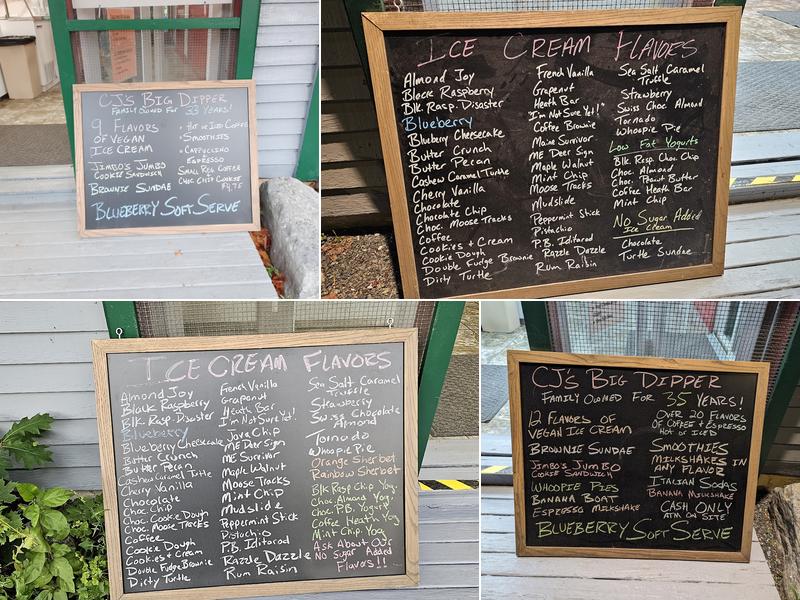 CJ'S BIG DIPPER
FAMILY OWNED FOR 33 YEARS!
9 FLAVORS
OF VEGAN
ICE CREAM
JIMBO'S JUMBO
COOKIE SANDWICH
BROWNIE SUNDAE
• HOT OR ICED COFFEE
• SMOOTHIES
• CAPPUCCINO
ESPRESSO
SMALL REG COFFEE
CHOC CHIP COOKIE
$4.75
BLUEBERRY SOFT SERVE
ICE CREAM FLAVORS
Almond Joy
Black Raspberry
Blk. Rasp. Disaster
Blueberry
Blueberry Cheesecake
Butter Crunch
Butter Pecan
Cashew Caramel Turtle
Cherry Vanilla
Chocolate
Chocolate Chip
Choc. Moose Tracks
Coffee
Cookies + Cream
Cookie Dough
Double Fudge Brownie
Dirty Turtle
French Vanilla
Grapenut
Heath Bar
"I'm Not Sure Yet!"
Coffee Brownie
Maine Survivor
ME Deer Sign
Maple Walnut
Mint Chip
Moose Tracks
Mudslide
Peppermint Stick
Pistachio
P.B. Iditarod
Razzle Dazzle
Rum Raisin
Sea Salt Caramel
Truffle
Strawberry
Swiss Choc. Almond
Tornado
Whoopie Pie
Low Fat Yogurts
Blk. Rasp. Choc. Chip
Choc. Almond
Choc. Peanut Butter
Coffee Heath Bar
Mint Chip
No Sugar Added
Ice Cream
Chocolate
Turtle Sundae
ICE CREAM FLAVORS
Almond Joy
Black Raspberry
Blk. Rasp. Disaster
Blueberry
Blueberry Cheesecake
Butter Crunch
Butter Pecan
Cashew Caramel Turtle
Cherry Vanilla
Chocolate
Choc. Chip
Choc. Cookie Dough
Choc. Moose Tracks
Coffee
Cookie Dough
Cookies + Cream
Double Fudge Brownie
Dirty Turtle
French Vanilla
Grapenut
Heath Bar
"I'm Not Sure Yet!"
Java Chip
ME Deer Sign
ME Survivor
Maple Walnut
Moose Tracks
Mint Chip
Mudslide
Peppermint Stick
Pistachio
P.B. Iditarod
Razzle Dazzle
Rum Raisin
Sea Salt Caramel
Truffle
Strawberry
Swiss Chocolate
Almond
Tornado
Whoopie Pie
Orange Sherbet
Rainbow Sherbet
Blk Rasp Chip Yog.
Choc. Almond Yog.
Choc. P.B. Yogurt
Coffee Heath Yog
Mint Chip. Yog.
Ask About Our
No Sugar Added
Flavors!!
CJ'S BIG DIPPER
FAMILY OWNED FOR 35 YEARS!
12 FLAVORS OF
VEGAN ICE CREAM
BROWNIE SUNDAE
JIMBO'S JUMBO
COOKIE SANDWICH
WHOOPIE PIES
BANANA BOAT
ESPRESSO MILKSHAKE
OVER 20 FLAVORS
OF COFFEE + ESPRESSO
HOT OR ICED
SMOOTHIES
MILKSHAKES IN
ANY FLAVOR
ITALIAN SODAS
BANANA MILKSHAKE
CASH ONLY
ATM ON SITE
BLUEBERRY SOFT SERVE